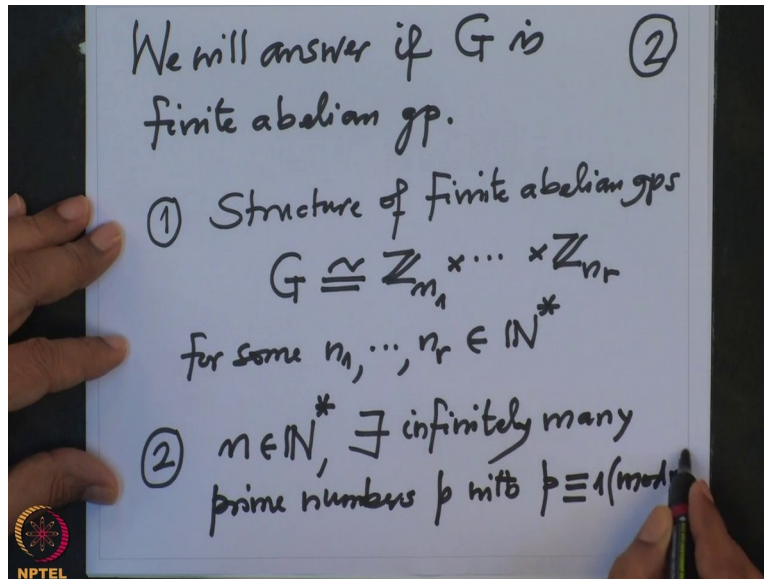 We will answer if G is ②
finite abelian gp.
① Structure of Finite abelian gps
G ≅ ℤ_{n_1} × ⋯ × ℤ_{n_r}
for some n_1, ⋯, n_r ∈ ℕ^*
② n ∈ ℕ^*, ∃ infinitely many
prime numbers p with p ≡ 1 (mod
NPTEL